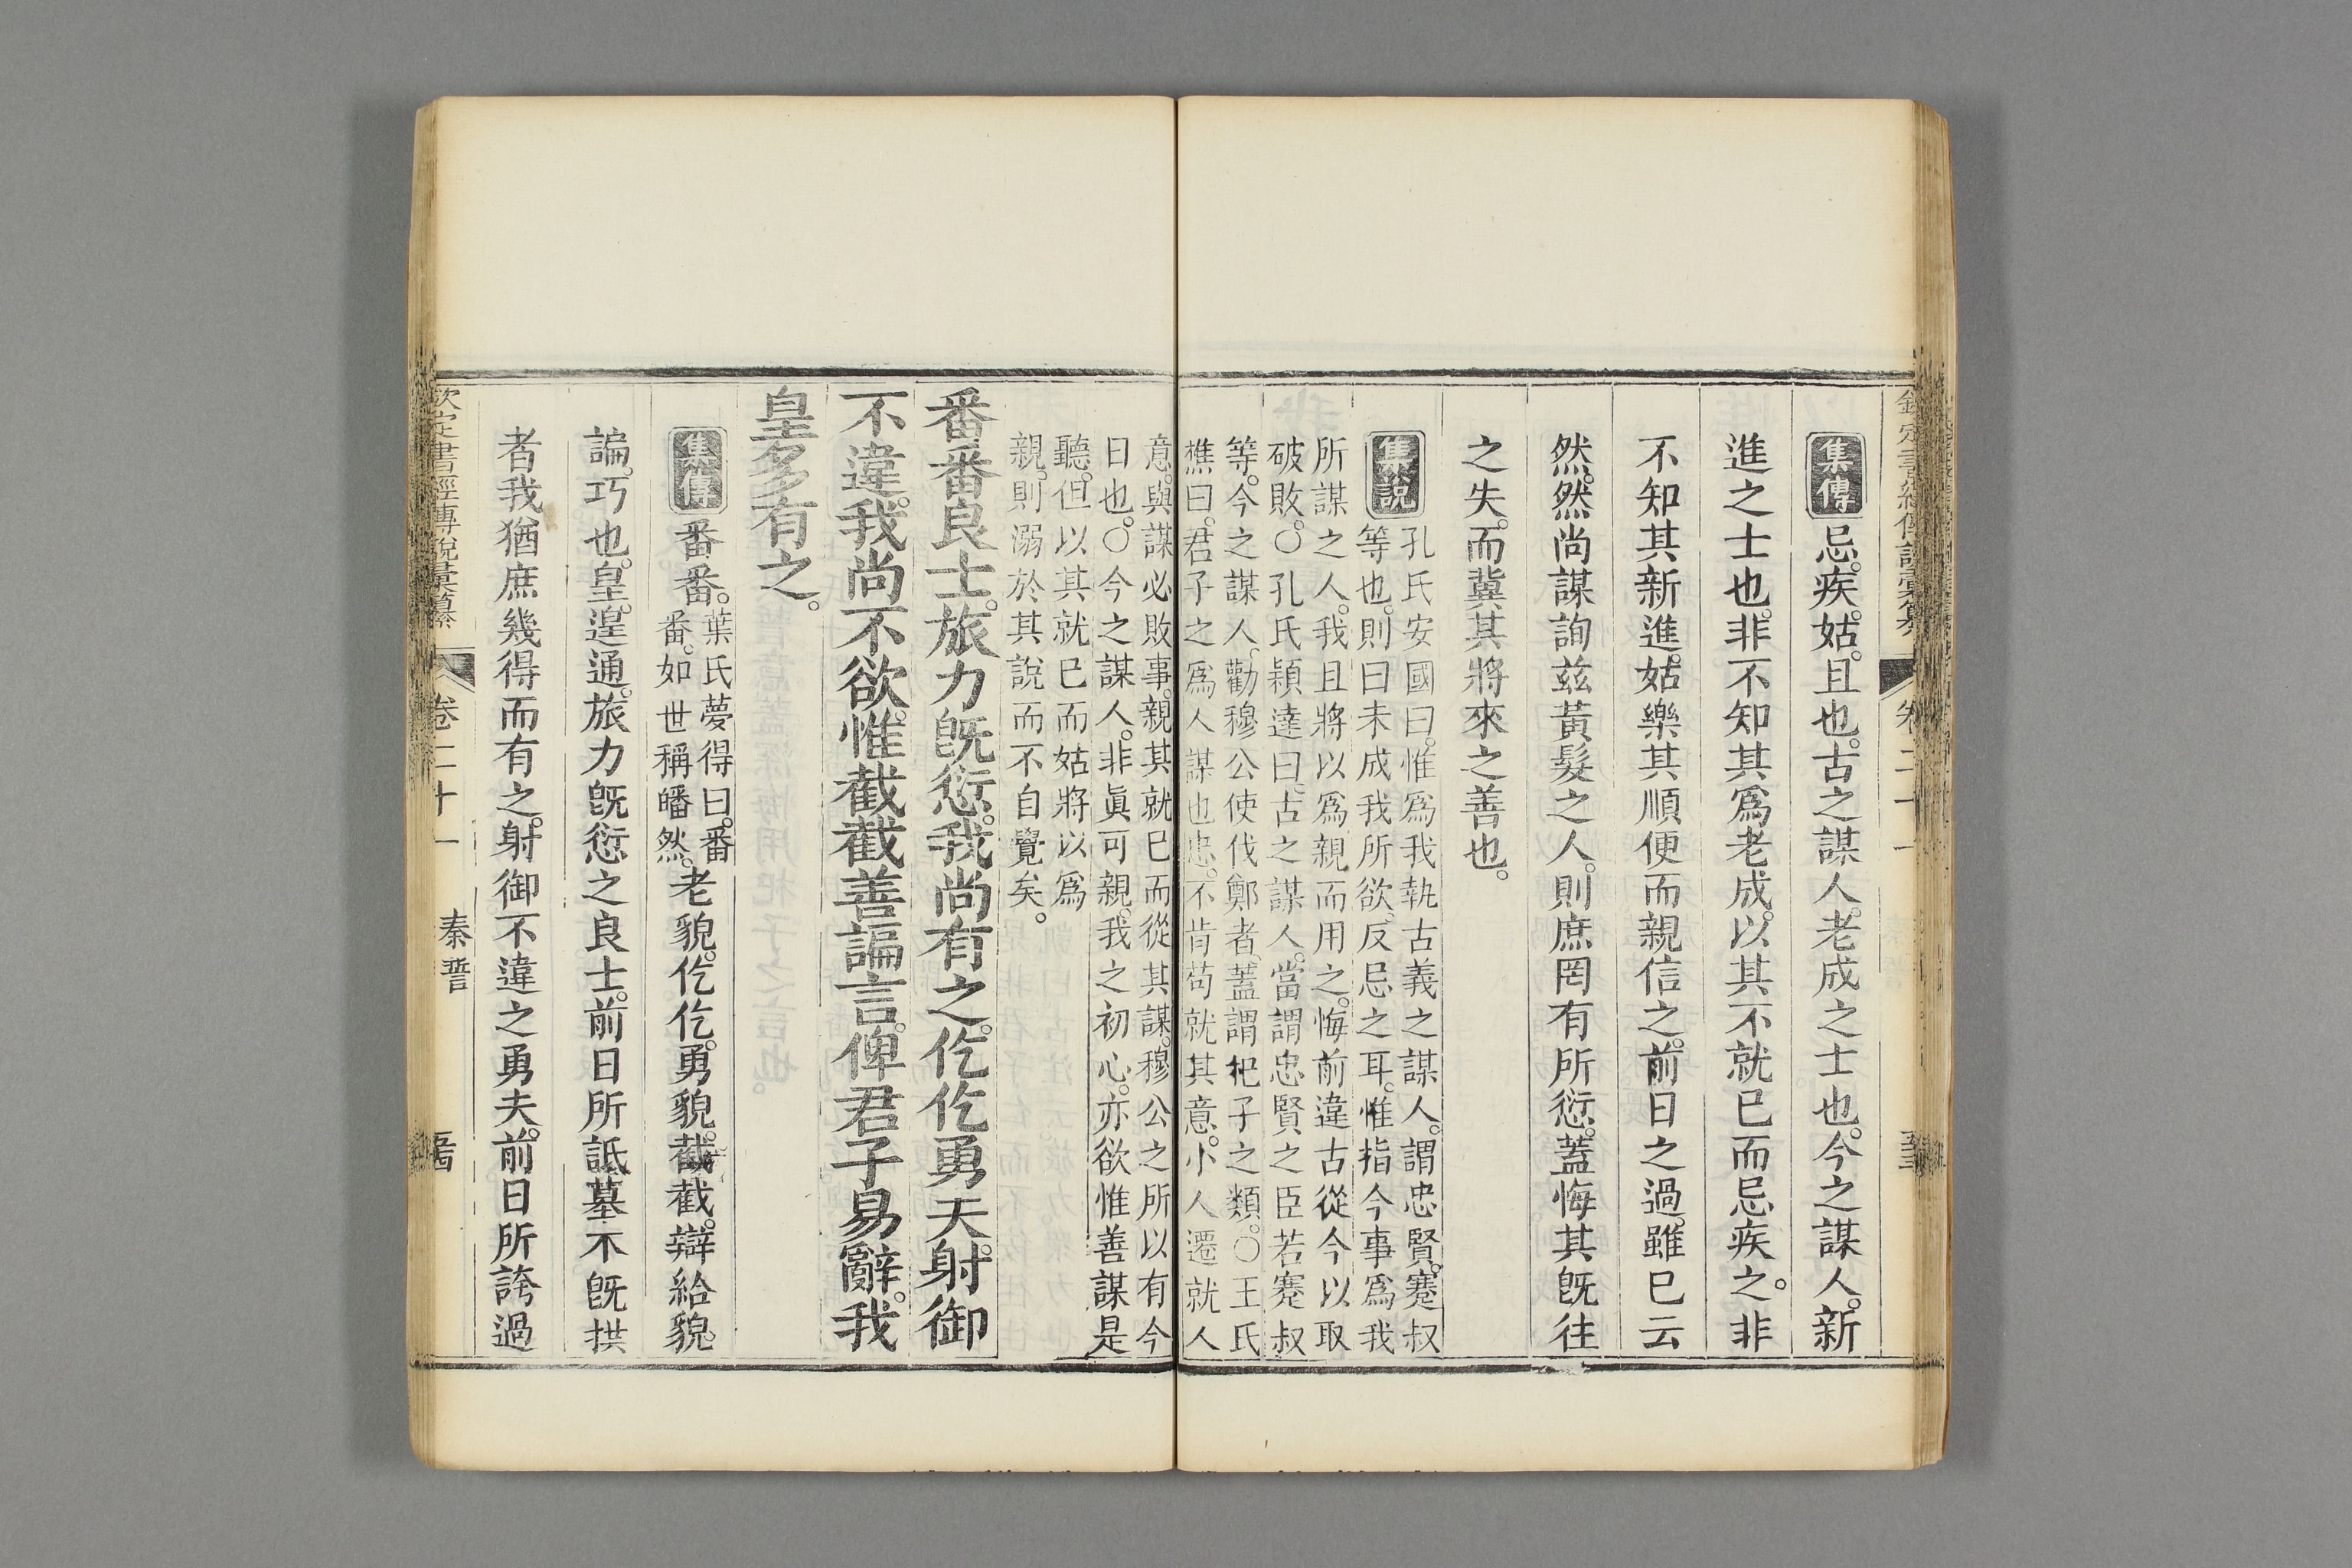 集傳 忌。疾。姑。且也。古之謀人。老成之士也。今之謀人。新
進之士也。非不知其爲老成。以其不就已而忌疾之。非
不知其新進。姑樂其順便而親信之。前日之過。雖已云
然。然尚謀詢茲黃髮之人。則庶罔有所愆。蓋悔其旣往
之失。而冀其將來之善也。
集說 孔氏安國曰。惟爲我執古義之謀人。謂忠賢。蹇叔
等也。則曰未成我所欲。反忌之耳。惟指今事爲我
所謀之人。我且將以爲親而用之。悔前違古從今以取
破敗。○孔氏穎達曰。古之謀人。當謂忠賢之臣若蹇叔
等。今之謀人。勸穆公使伐鄭者。蓋謂杞子之類。○王氏
樵曰。君子之爲人謀也忠。不肯苟就其意。小人遷就人
意。與謀必敗事。親其就已而從其謀。穆公之所以有今
日也。○今之謀人。非眞可親。我之初心。亦欲惟善謀是
聽。但以其就已而姑將以爲
親。則溺於其說而不自覺矣。
番番良士。旅力旣愆。我尚有之。仡仡勇夫。射御
不違。我尚不欲。惟截截善諞言。俾君子易辭。我
皇多有之。
集傳 番番。葉氏夢得曰。番
番。如世稱皤然。老貌。仡仡。勇貌。截截。辯給貌。
諞。巧也。皇。遑通。旅力旣愆之良士。前日所詆墓木旣拱
者。我猶庶幾得而有之。射御不違之勇夫。前日所誇過
欽定書經傳說彙纂
卷二十一
秦誓